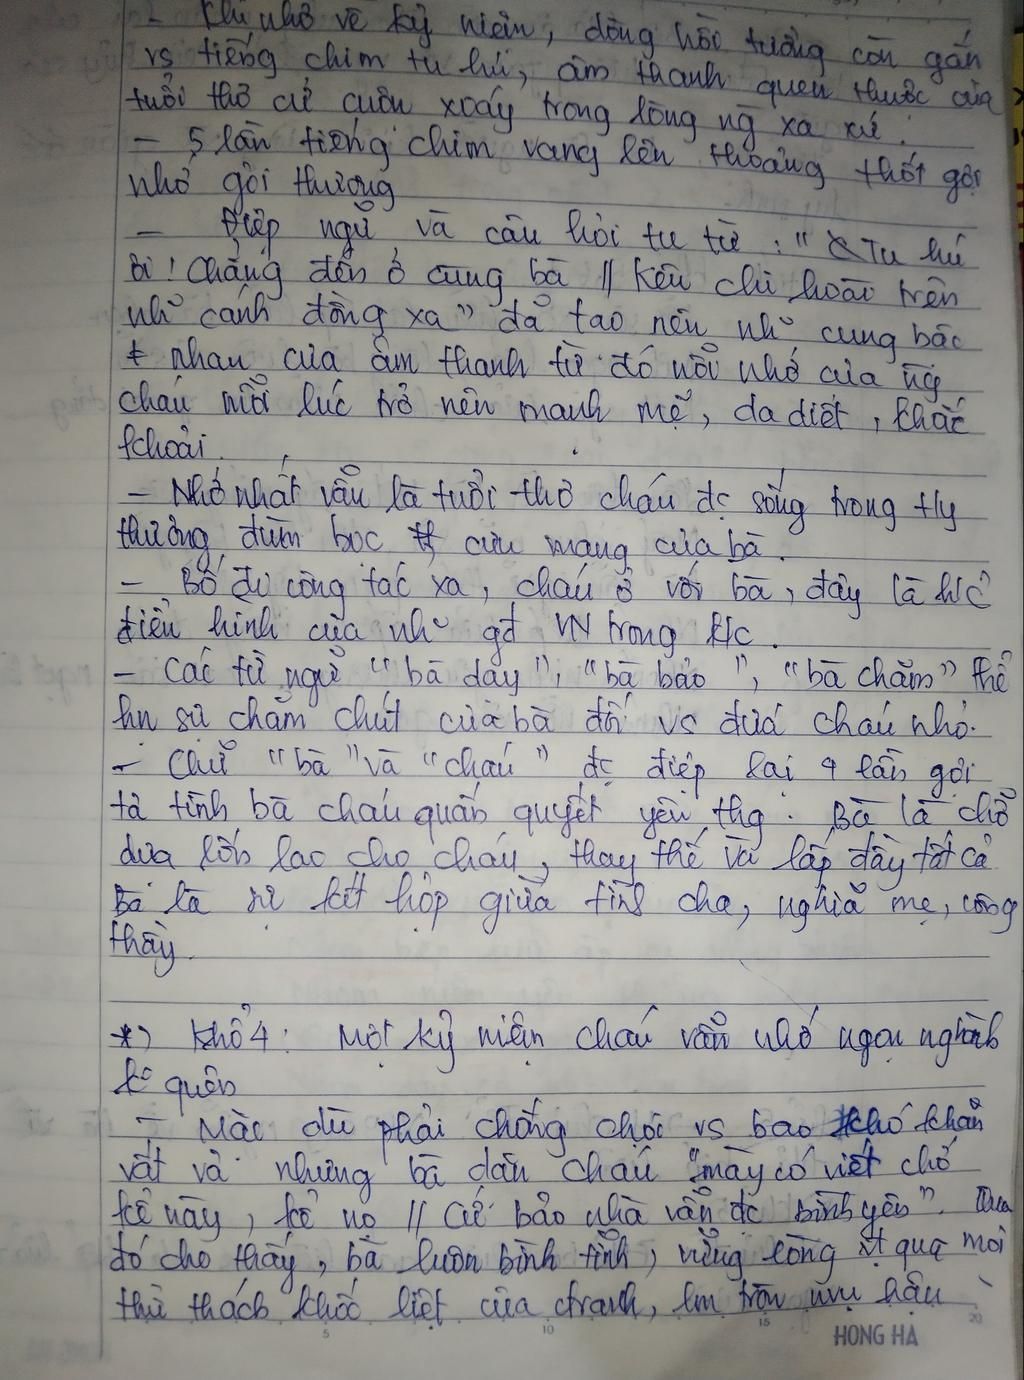 - Khi nhớ về kỷ niệm, dòng hồi tưởng còn gắn
vs tiếng chim tu hú, âm thanh quen thuộc của
tuổi thơ cứ cuộn xoáy trong lòng ng xa xứ.
- 5 lần tiếng chim vang lên thoảng thốt gợi
nhớ gợi thương
- Điệp ngữ và câu hỏi tu từ : "Tu hú
ơi! Chẳng đến ở cùng bà // Kêu chi hoài trên
nh~ cánh đồng xa" đã tạo nên nh~ cung bậc
≠ nhau của âm thanh từ đó nỗi nhớ của ng
cháu mỗi lúc trở nên mạnh mẽ, da diết, khắc
khoải.
- Nhớ nhất vẫn là tuổi thơ cháu đc sống trong ty
thương, đùm bọc cưu mang của bà.
- Bố đi công tác xa, cháu ở với bà, đây là h/c
điển hình của nh~ gđ VN trong k/c.
- Các từ ngữ "bà dạy", "bà bảo", "bà chăm" thể
hn sự chăm chút của bà đối vs đứa cháu nhỏ.
- Chữ "bà" và "cháu" đc điệp lại 4 lần gợi
tả tình bà cháu quấn quyết yêu thg. Bà là chỗ
dựa lớn lao cho cháu, thay thế và lấp đầy tất cả
Bà là sự kết hợp giữa tình cha, nghĩa mẹ, công
thầy.
*) Khổ 4: Một kỷ niệm cháu vẫn nhớ ngọn nghành
k° quên
- Mặc dù phải chống chọi vs bao khó khăn
vất vả nhưng bà dặn cháu "mày có viết chớ
kể này, kể nọ // Cứ bảo nhà vẫn đc bình yên". Qua
đó cho thấy, bà luôn bình tĩnh, vững lòng vượt qua mọi
thử thách khốc liệt của ctranh, lm tròn nvụ hậu
HONG HA
5 10 15 20